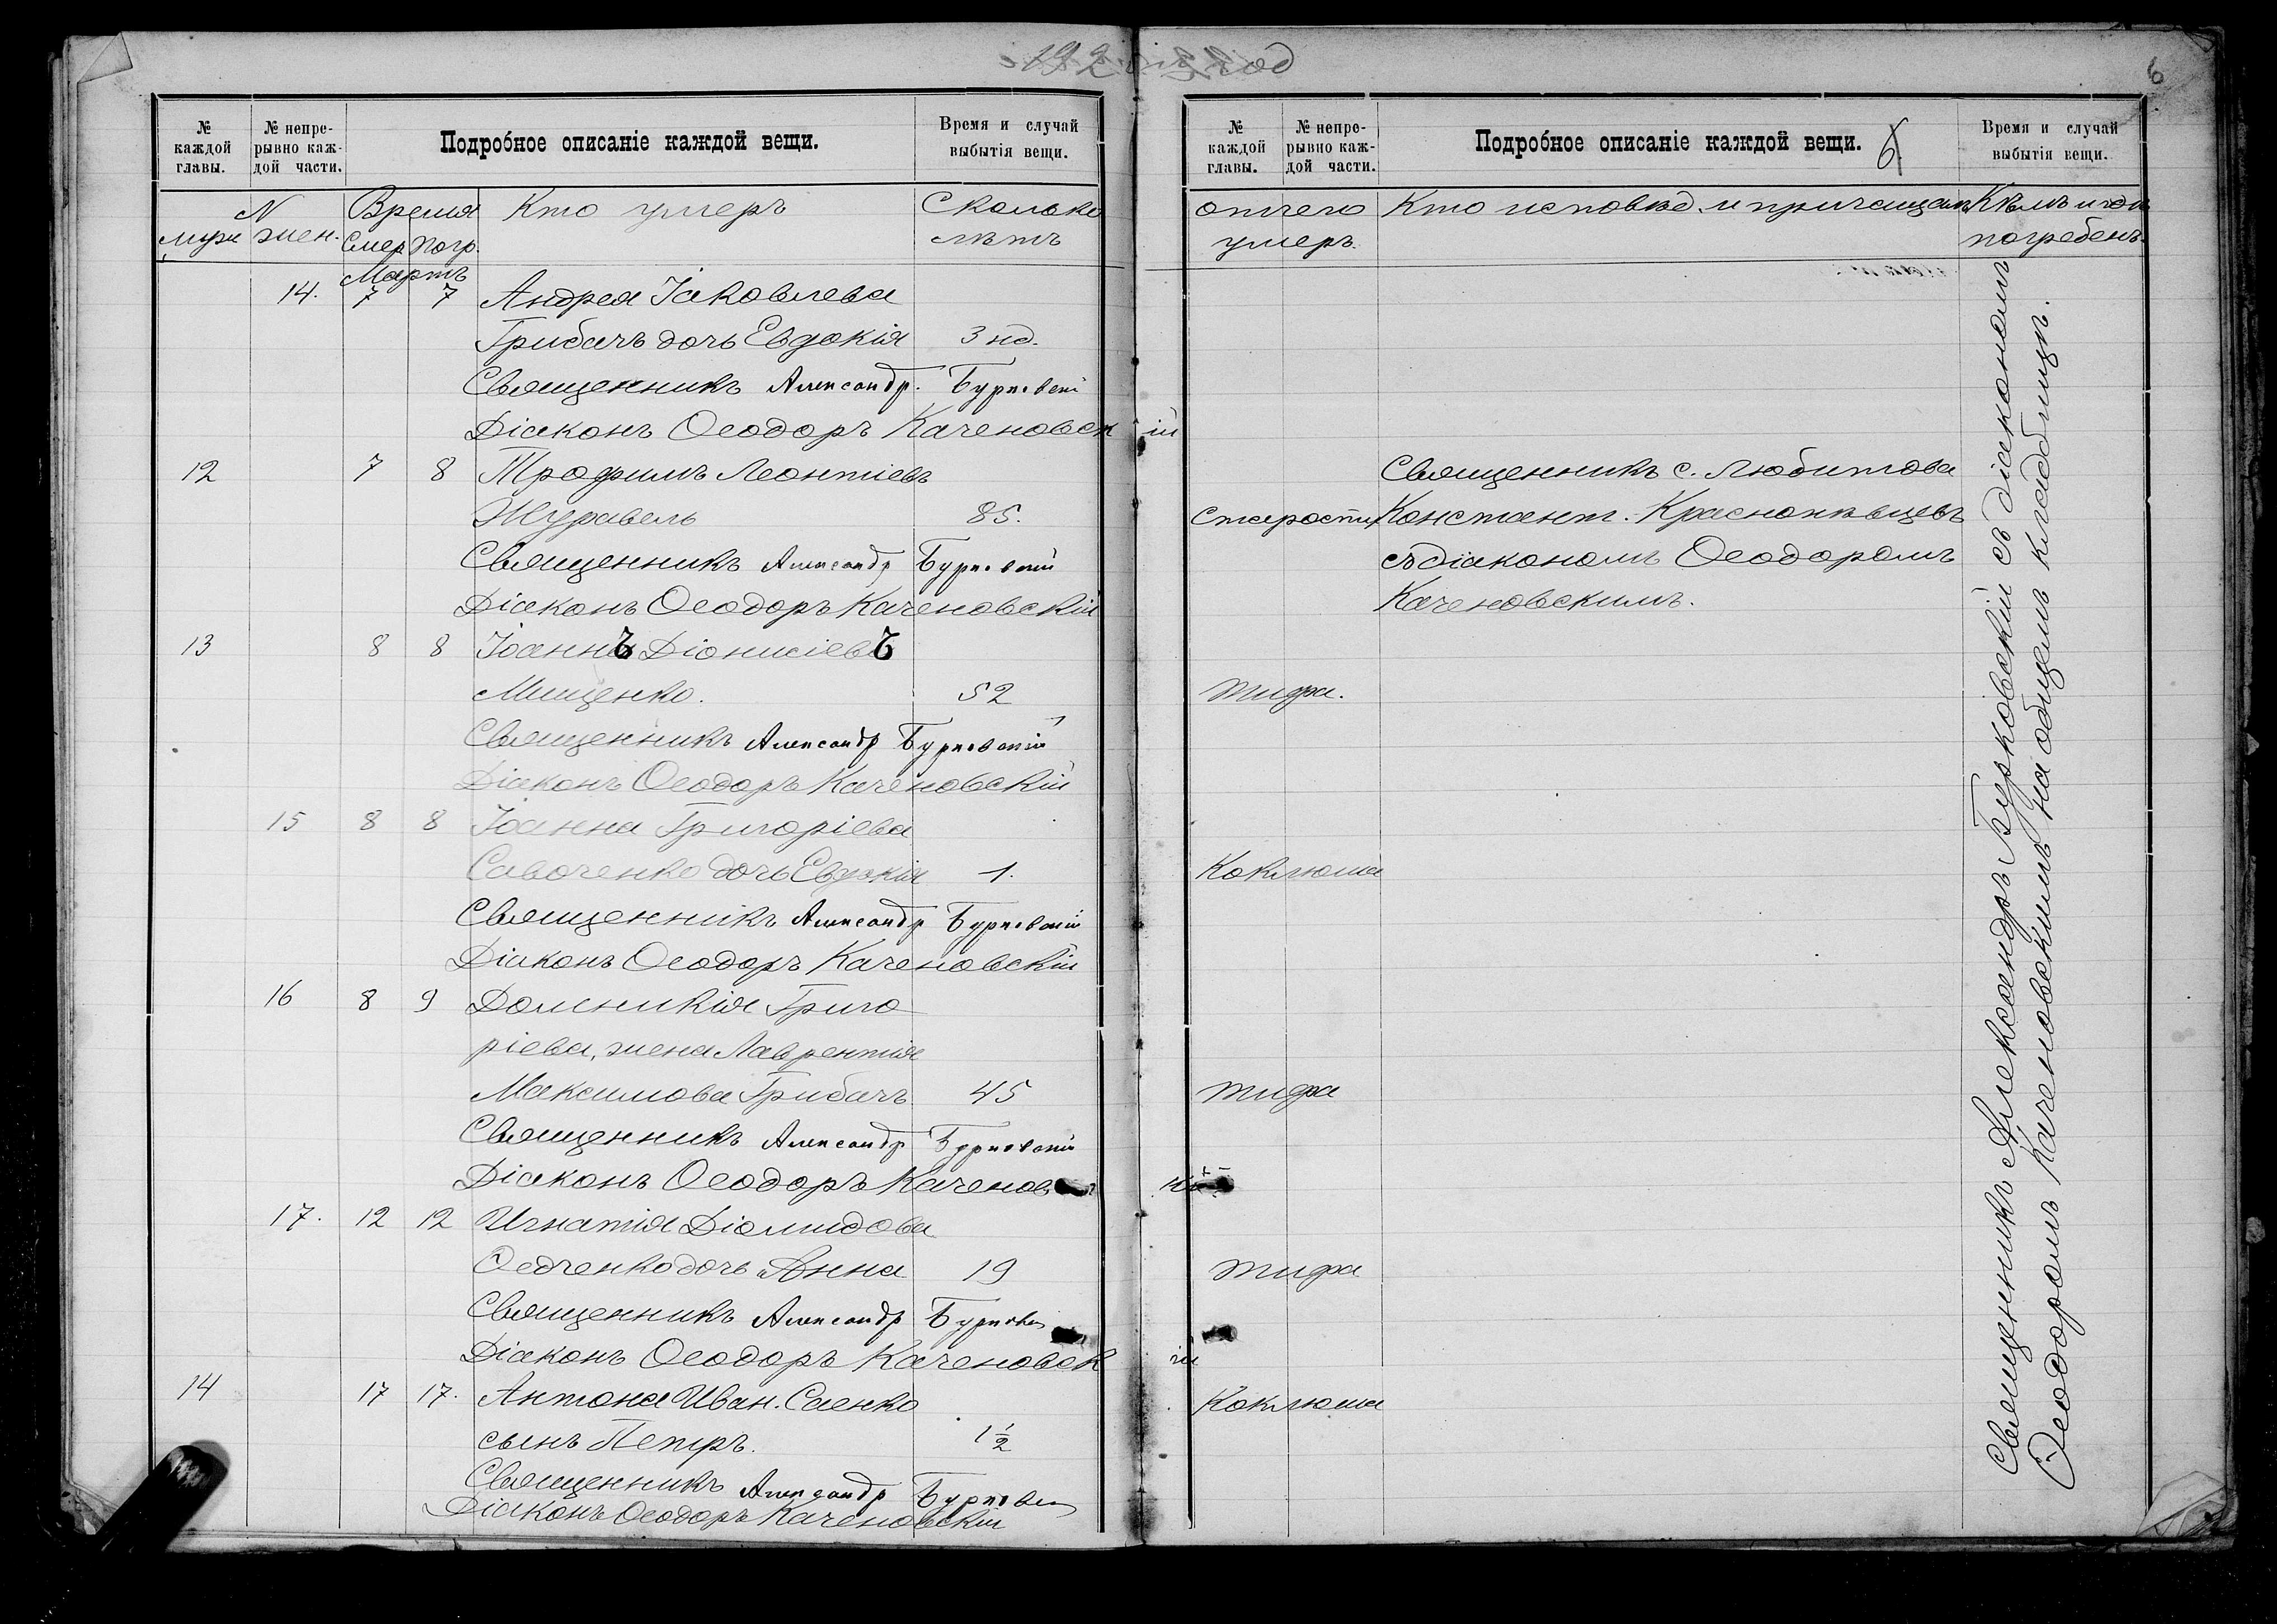 6
№ каждой главы. № непрерывно каждой части. Подробное описаніе каждой вещи. Время и случай выбытія вещи.
N Время Кто умеръ Сколько
муж жен. Смер. Погр. лѣтъ
Мартъ
14. 7 7 Андрея Іаковлева
Грибачъ дочь Евдокія 3 нд.
Священникъ Александр. Бурковскій
Діаконъ Ѳеодоръ Каченовскій
12 7 8 Трофимъ Леонтіевъ
Журавель 85.
Священникъ Александр Бурковскій
Діаконъ Ѳеодоръ Каченовскій
13 8 8 Іоаннъ Діонисіевъ
Мищенко. 52
Священникъ Александр Бурковскій
Діаконъ Ѳеодоръ Каченовскій
15 8 8 Іоанна Григоріева
Савоченко дочь Евдокія 1.
Священникъ Александр Бурковскій
Діаконъ Ѳеодоръ Каченовскій
16 8 9 Домникія Григо
ріева, жена Лаврентія
Максимова Грибачъ 45
Священникъ Александр Бурковскій
Діаконъ Ѳеодоръ Каченов
17. 12 12 Игнатія Діомидова
Ѳедченко дочь Анна 19
Священникъ Александр Бурковскій
Діаконъ Ѳеодоръ Каченовскій
14 17 17. Антона Иван. Саенко
сынъ Петръ. 1 1/2
Священникъ Александр Бурковскій
Діаконъ Ѳеодоръ Каченовскій
№ каждой главы. № непрерывно каждой части. Подробное описаніе каждой вещи. 6 Время и случай выбытія вещи.
отчего Кто исповѣд. и причащалъ Кѣмъ и гдѣ
умеръ. погребенъ.
Священникъ с. Любитова
старости Констант. Краснопѣвцевъ
съ діакономъ Ѳеодоромъ
Каченовскимъ.
тифа.
Коклюша
тифа
тифа
Коклюша
Священникъ Александръ Бурковскій съ діакономъ
Ѳеодоромъ Каченовскимъ на общемъ кладбищѣ.